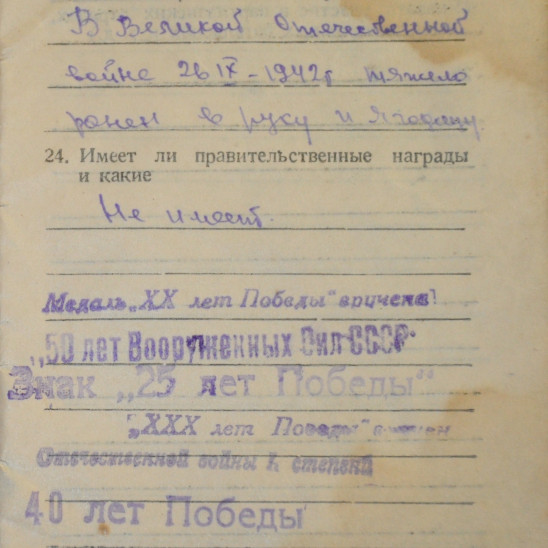 В Великой Отечественной
войне 26 IX - 1942г тяжело
ранен в руку и ягодицу
24. Имеет ли правительственные награды
и какие
Не имеет.
Медаль „XX лет Победы" вручена
„50 лет Вооруженных Сил СССР"
Знак „25 лет Победы"
„XXX лет Победы" вручен
Отечественной войны степени
40 лет Победы